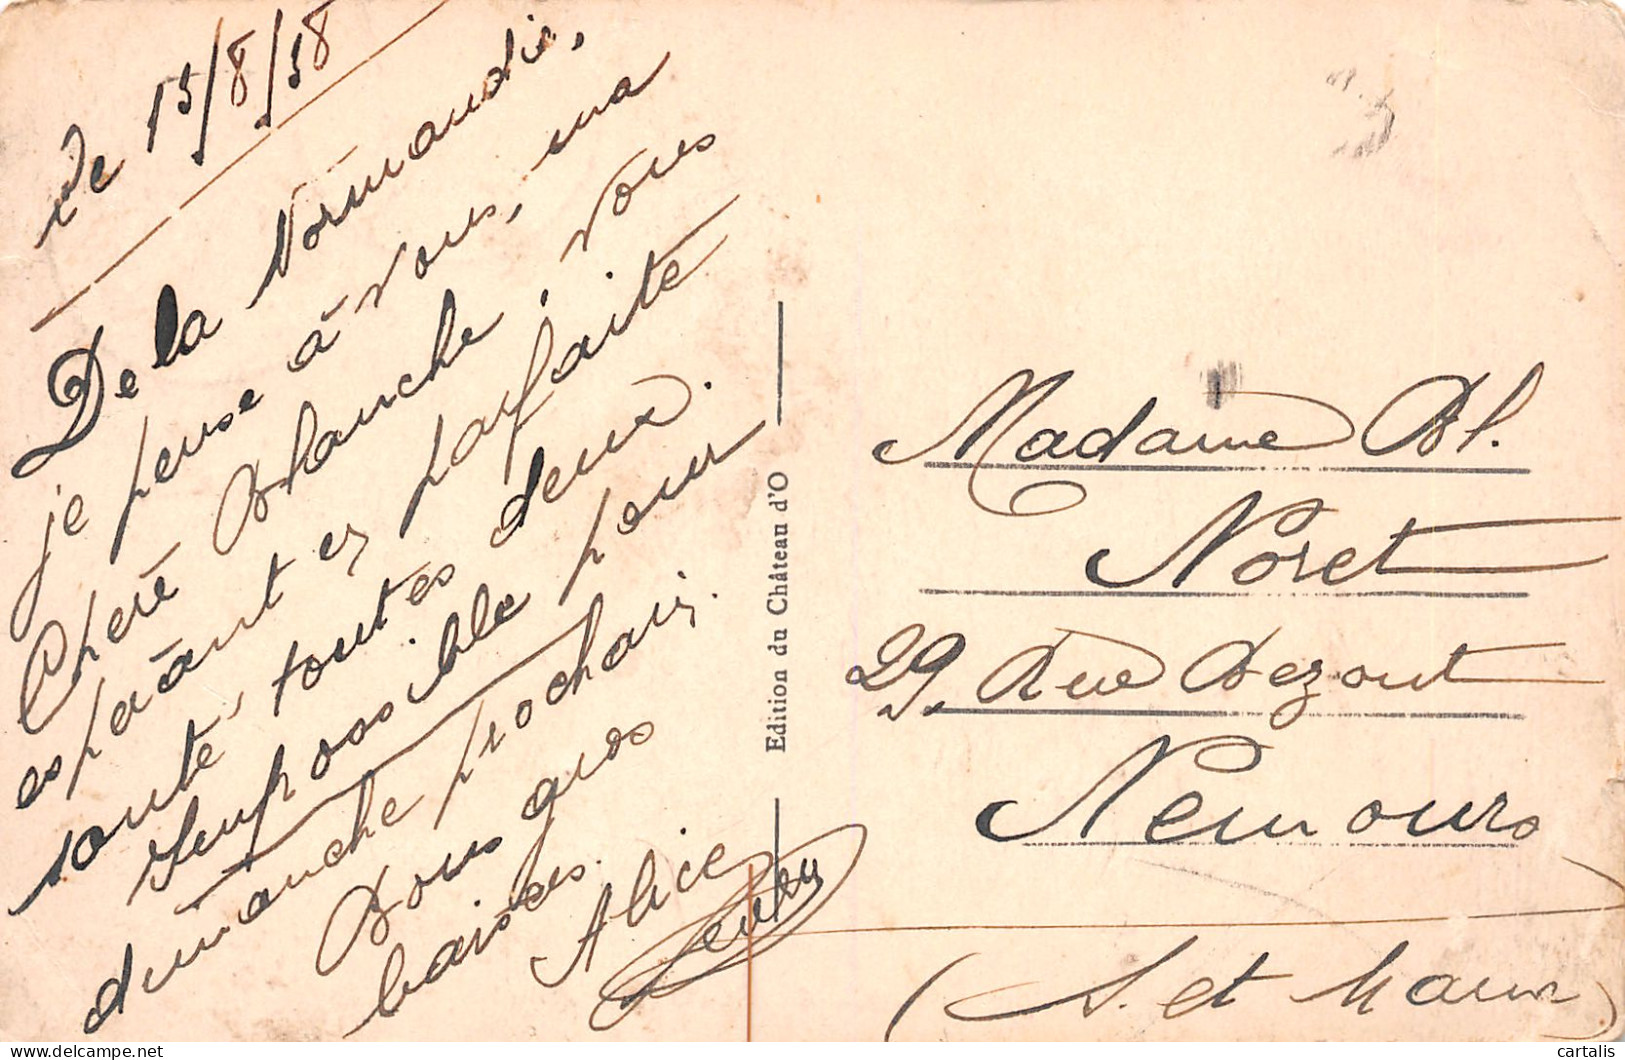 Le 15/8/38
De la Normandie,
je pense à vous, ma
Chère Blanche, vous
espérant en parfaite
santé, toutes deux.
Impossible pour
dimanche prochain.
Bons gros
baisers.
Alice
Edition du Château d'O
Madame Bl.
Noret
29, Rue Bezout
Nemours
(S. et Marne)
cartalis